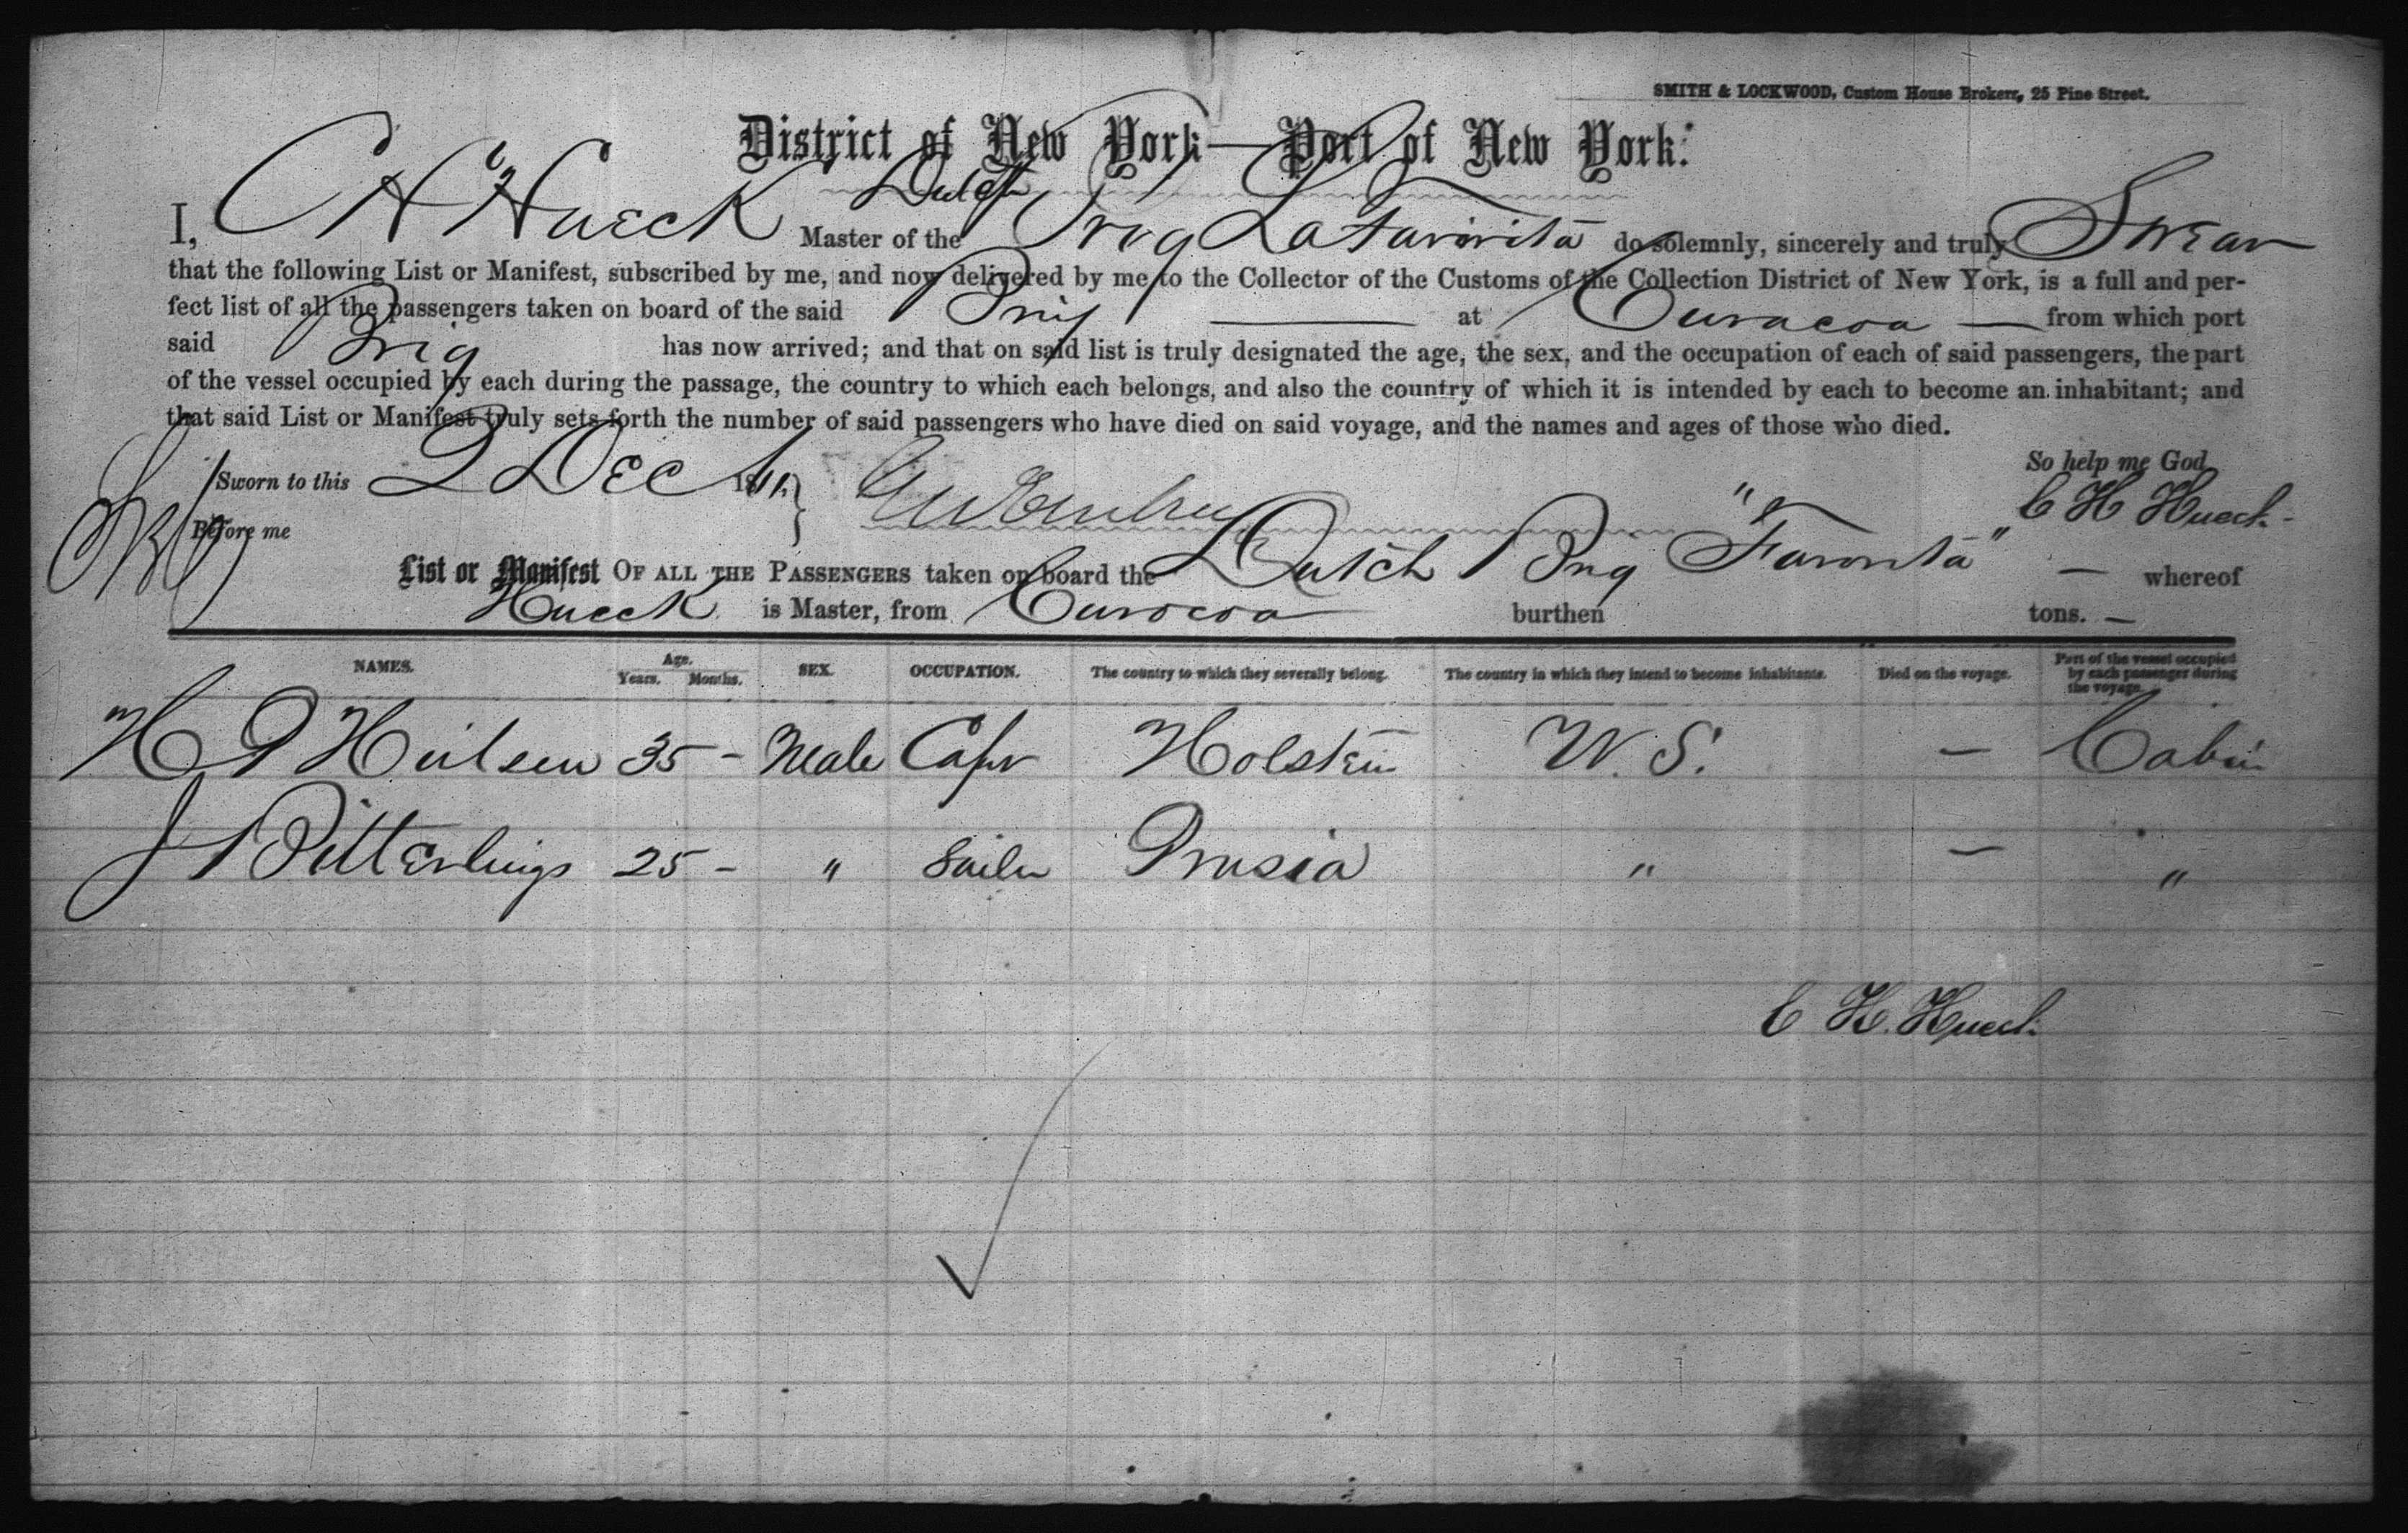 SMITH & LOCKWOOD, Custom House Brokers, 25 Pine Street.
District of New York—Port of New York.
I, C H Hueck Master of the Dutch Brig La Favorita do solemnly, sincerely and truly Swear
that the following List or Manifest, subscribed by me, and now delivered by me to the Collector of the Customs of the Collection District of New York, is a full and per-
fect list of all the passengers taken on board of the said Brig — at Curacoa — from which port
said Brig has now arrived; and that on said list is truly designated the age, the sex, and the occupation of each of said passengers, the part
of the vessel occupied by each during the passage, the country to which each belongs, and also the country of which it is intended by each to become an inhabitant; and
that said List or Manifest truly sets forth the number of said passengers who have died on said voyage, and the names and ages of those who died.
So help me God
Sworn to this 2 Dec 18
C H Hueck
Before me
List or Manifest OF ALL THE PASSENGERS taken on board the Dutch Brig "Favorita" — whereof
Hueck is Master, from Curocoa burthen tons. —
NAMES. Age. Years. Months. SEX. OCCUPATION. The country to which they severally belong. The country in which they intend to become inhabitants. Died on the voyage. Part of the vessel occupied by each passenger during the voyage.
H 35 - Male Holstein — Cabin
J 25 - " Prusia " — "
C H. Hueck